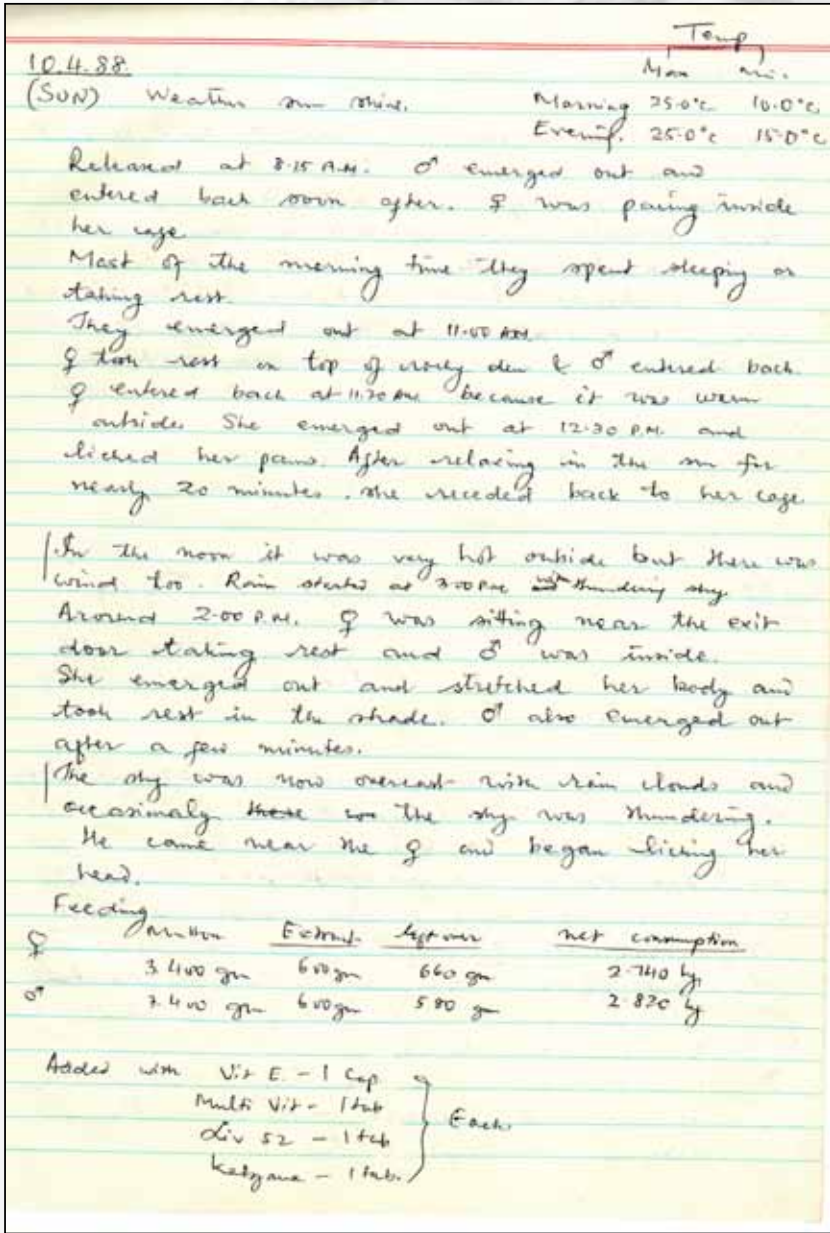 Temp
10.4.88. Max Min.
(SUN) Weather sun shine. Morning 25.0°c 10.0°c
Evening. 25.0°c 15.0°c
Released at 8.15 A.M. ♂ emerged out and
entered back soon after. ♀ was pacing inside
her cage
Most of the morning time they spent sleeping or
taking rest.
They emerged out at 11.00 AM.
♀ took rest on top of den & ♂ entered back.
♀ entered back at 11.30 AM because it was warm
outside. She emerged out at 12.30 P.M. and
licked her paws. After relaxing in the sun for
nearly 20 minutes. she receded back to her cage
In the noon it was very hot outside but there was
wind too. Rain started at 3.00 P.M. with thundering sky
Around 2.00 P.M. ♀ was sitting near the exit
door taking rest and ♂ was inside.
She emerged out and stretched her body and
took rest in the shade. ♂ also emerged out
after a few minutes.
The sky was now overcast with rain clouds and
occasimaly the sky was thundering.
He came near the ♀ and began licking her
head.
Feeding
Mutton leftover net consumption
♀ 3.400 gm 600gm 660 gm 2.740 kg
♂ 3.400 gm 600gm 580 gm 2.820 kg
Added with Vit E. - 1 Cap
Multi Vit - 1 tab
Liv 52 - 1 tab Each.
- 1 tab.